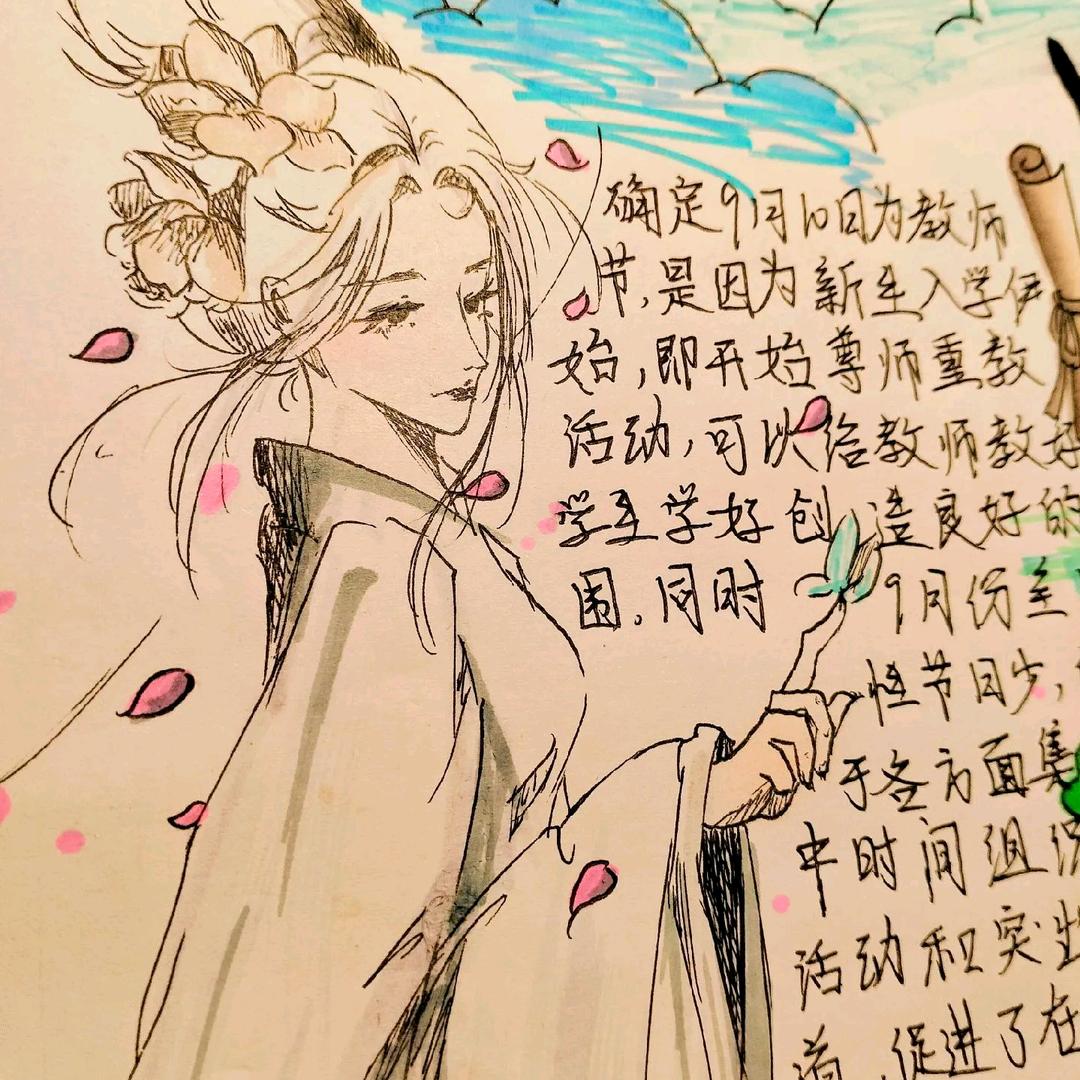 确定9月10日为教师
节,是因为新生入学伊
始,即开始尊师重教
活动,可以给教师教好
学生学好创造良好的
围。同时9月份全
性节日少,
于各方面集
中时间组织
活动和突出
道,促进了在